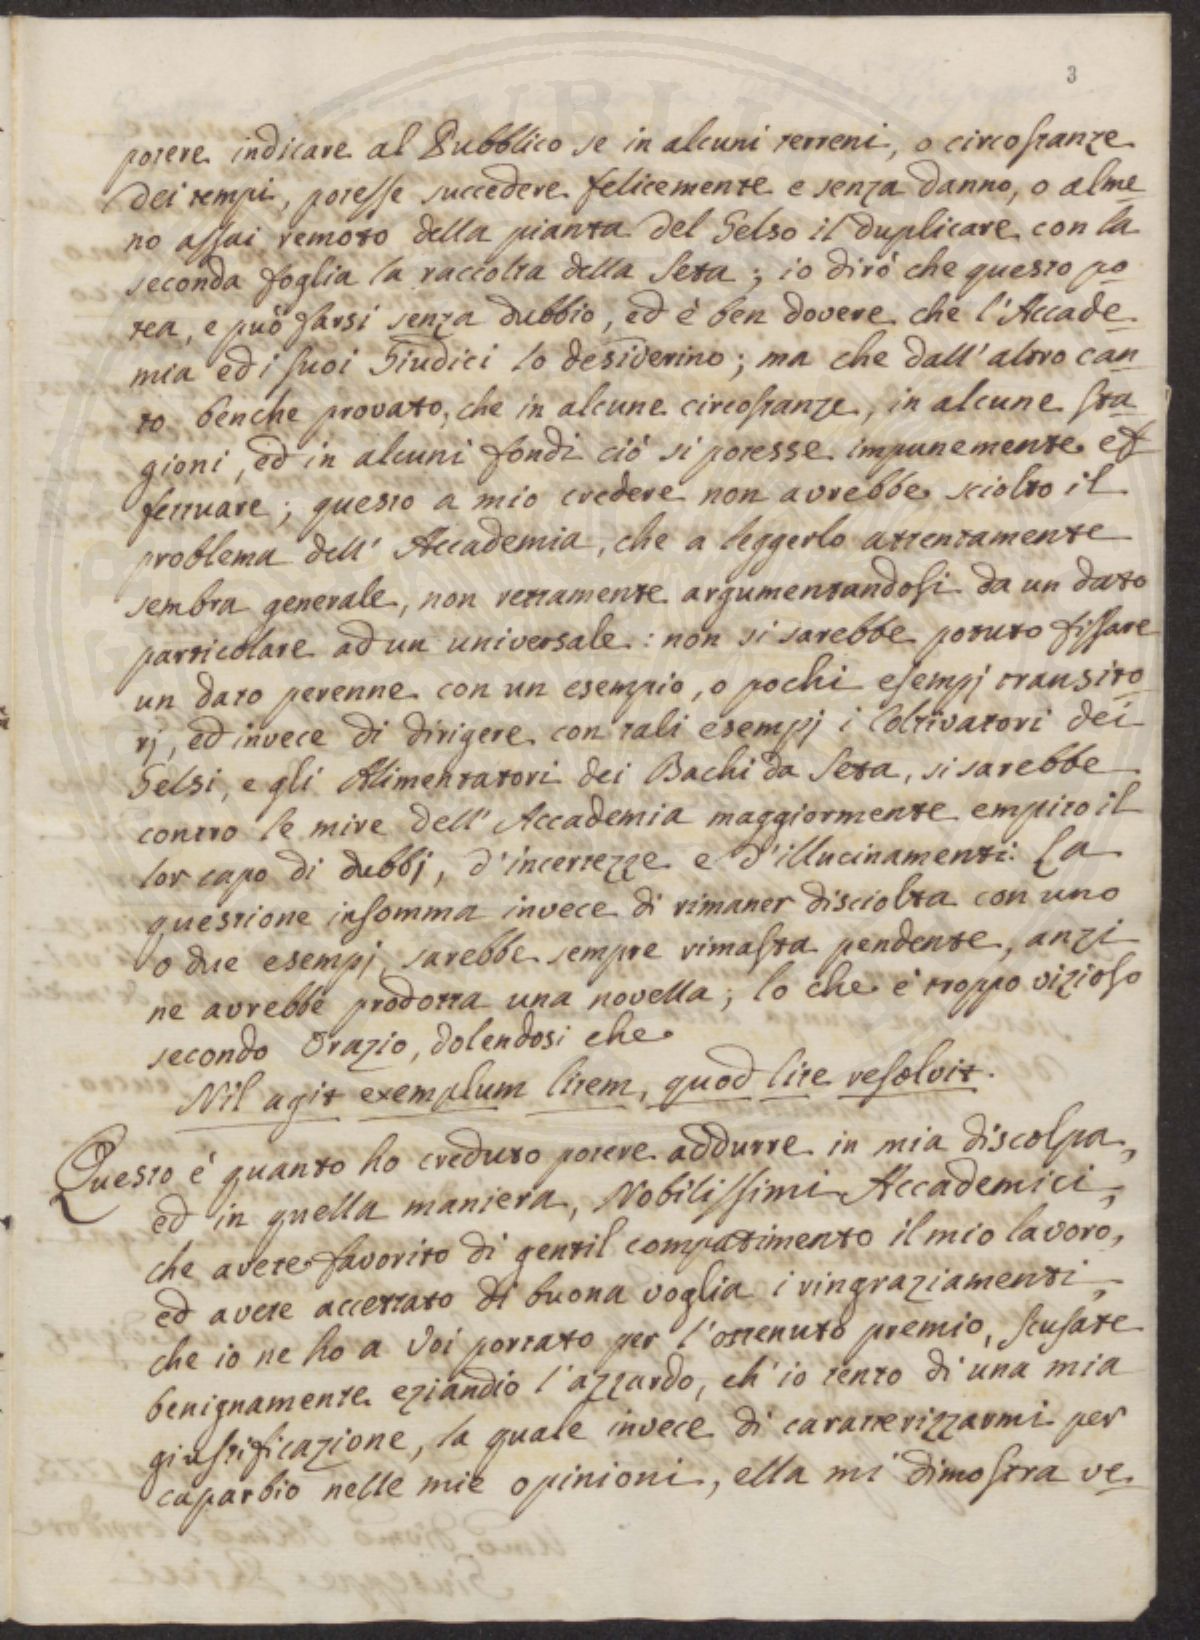 3
potere indicare al Pubblico se in alcuni terreni, o circostanze
dei tempi, potesse succedere felicemente e senza danno, o alme
no assai remoto della pianta del Gelso il duplicare con la
seconda foglia la raccolta della Seta; io dirò che questo po
tea, e può farsi senza dubbio, ed è ben dovere che l'Accade
mia ed i suoi Giudici lo desiderino; ma che dall'altro can
to benche provato, che in alcune circostanze, in alcune sta
gioni, ed in alcuni fondi ciò si potesse impunemente ef
fettuare; questo a mio credere non avrebbe sciolto il
problema dell'Accademia, che a leggerlo attentamente
sembra generale, non rettamente argumentandosi da un dato
particolare ad un universale: non si sarebbe potuto fissare
un dato perenne con un esempio, o pochi esempj transito
rj, ed invece di dirigere con tali esempj i Coltivatori dei
Gelsi, e gli Alimentatori dei Bachi da Seta, si sarebbe
contro le mire dell'Accademia maggiormente empito il
lor capo di dubbj, d'incertezze e d'illucinamenti. La
questione insomma invece di rimaner disciolta con uno
o due esempj sarebbe sempre rimasta pendente, anzi
ne avrebbe prodotta una novella; lo che è troppo vizioso
secondo Orazio, dolendosi che
Nil agit exemplum litem, quod lite resolvit.
Questo è quanto ho creduto potere addurre in mia discolpa,
ed in quella maniera, Nobilissimi Accademici,
che avete favorito di gentil compatimento il mio lavoro,
ed avete accettato di buona voglia i ringraziamenti,
che io ne ho a Voi portato per l'ottenuto premio, scusate
benignamente eziandio l'azzardo, ch'io tento di una mia
giustificazione, la quale invece di caratterizzarmi per
caparbio nelle mie opinioni, ella mi dimostra ve